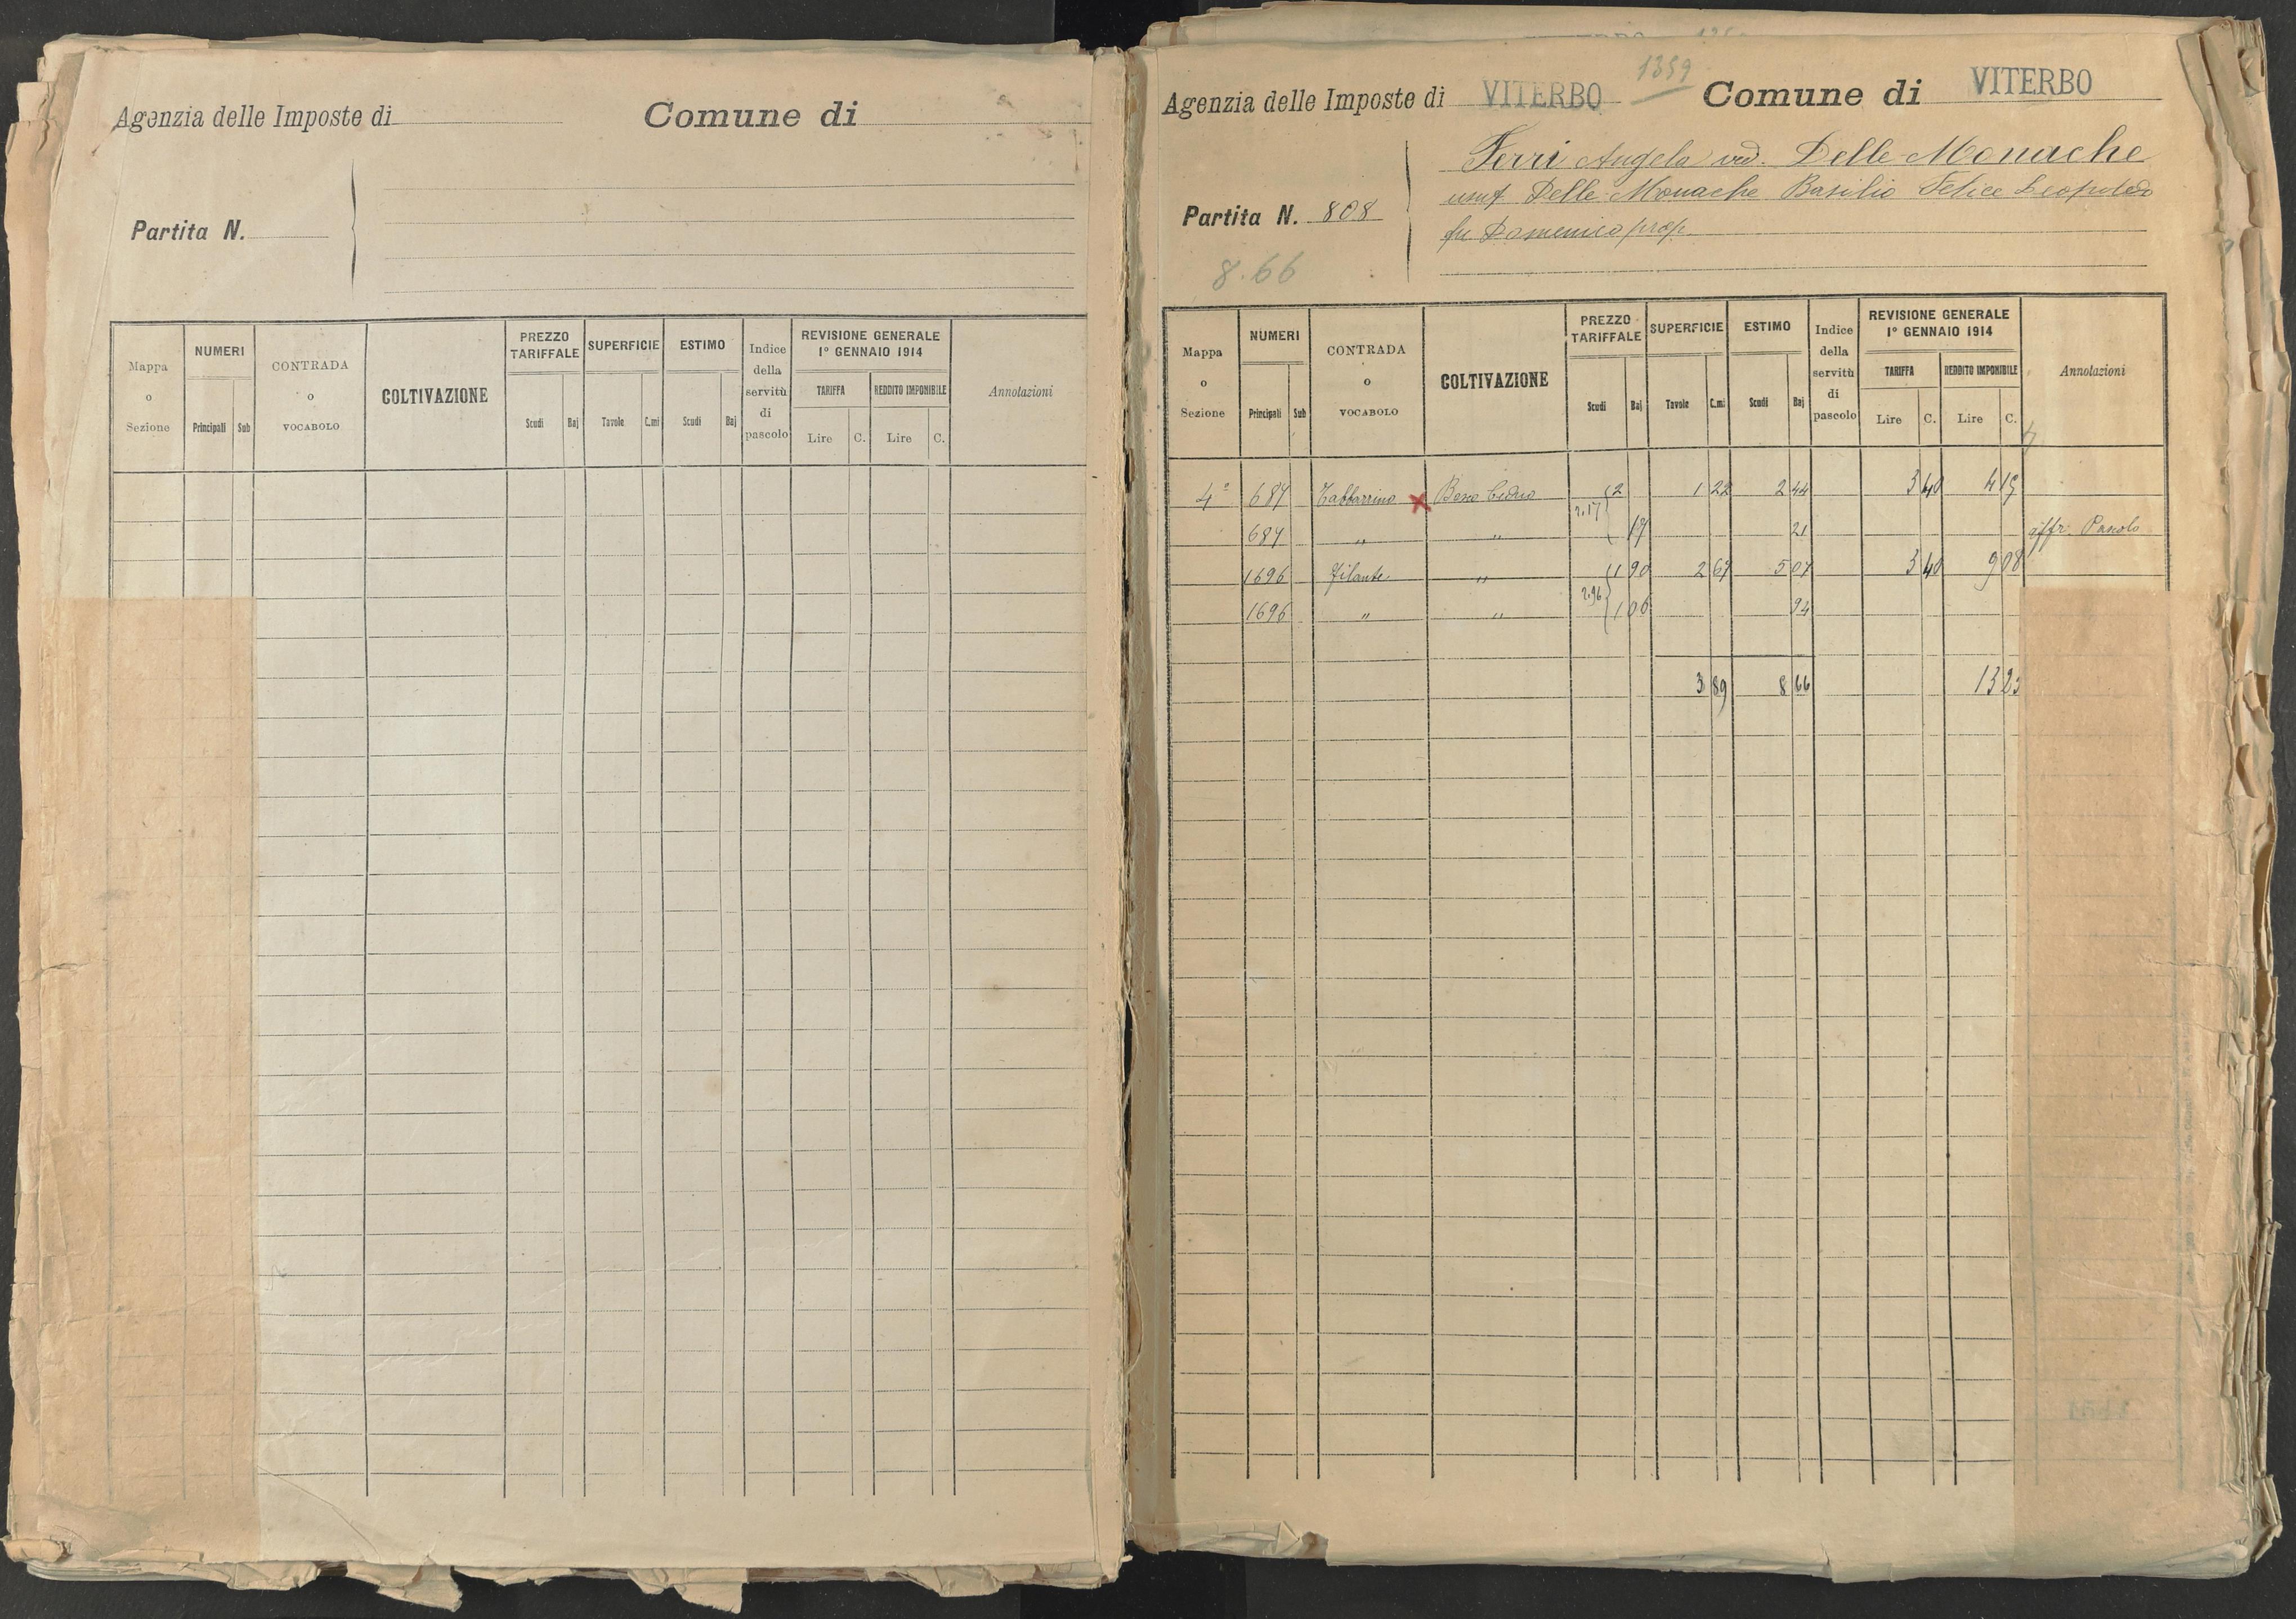 Agenzia delle Imposte di
Comune di
Partita N.
Mappa o Sezione
NUMERI
Principali Sub
CONTRADA o VOCABOLO
COLTIVAZIONE
PREZZO TARIFFALE
Scudi Baj
SUPERFICIE
Tavole C.mi
ESTIMO
Scudi Baj
Indice della servitù di pascolo
REVISIONE GENERALE
1° GENNAIO 1914
TARIFFA
Lire C.
REDDITO IMPONIBILE
Lire C.
Annotazioni
1359
Agenzia delle Imposte di VITERBO Comune di VITERBO
Ferri Angela ved. Delle Monache
usuf Delle Monache Basilio Felice Leopoldo
fu Domenico prop.
Partita N. 808
8.66
Mappa o Sezione
NUMERI
Principali Sub
CONTRADA o VOCABOLO
COLTIVAZIONE
PREZZO TARIFFALE
Scudi Baj
SUPERFICIE
Tavole C.mi
ESTIMO
Scudi Baj
Indice della servitù di pascolo
REVISIONE GENERALE
1° GENNAIO 1914
TARIFFA
Lire C.
REDDITO IMPONIBILE
Lire C.
Annotazioni
4ª 687 Tabbarrino Bosco Ceduo 2 1 22 2 44 3 40 4 15
2.17
687 " " 17 21 affr. Pascolo
1696 Filante " 1 90 2 67 5 07 3 40 9 08
2.96
1696 " " 1 06 94
3 89 8 66 13 23